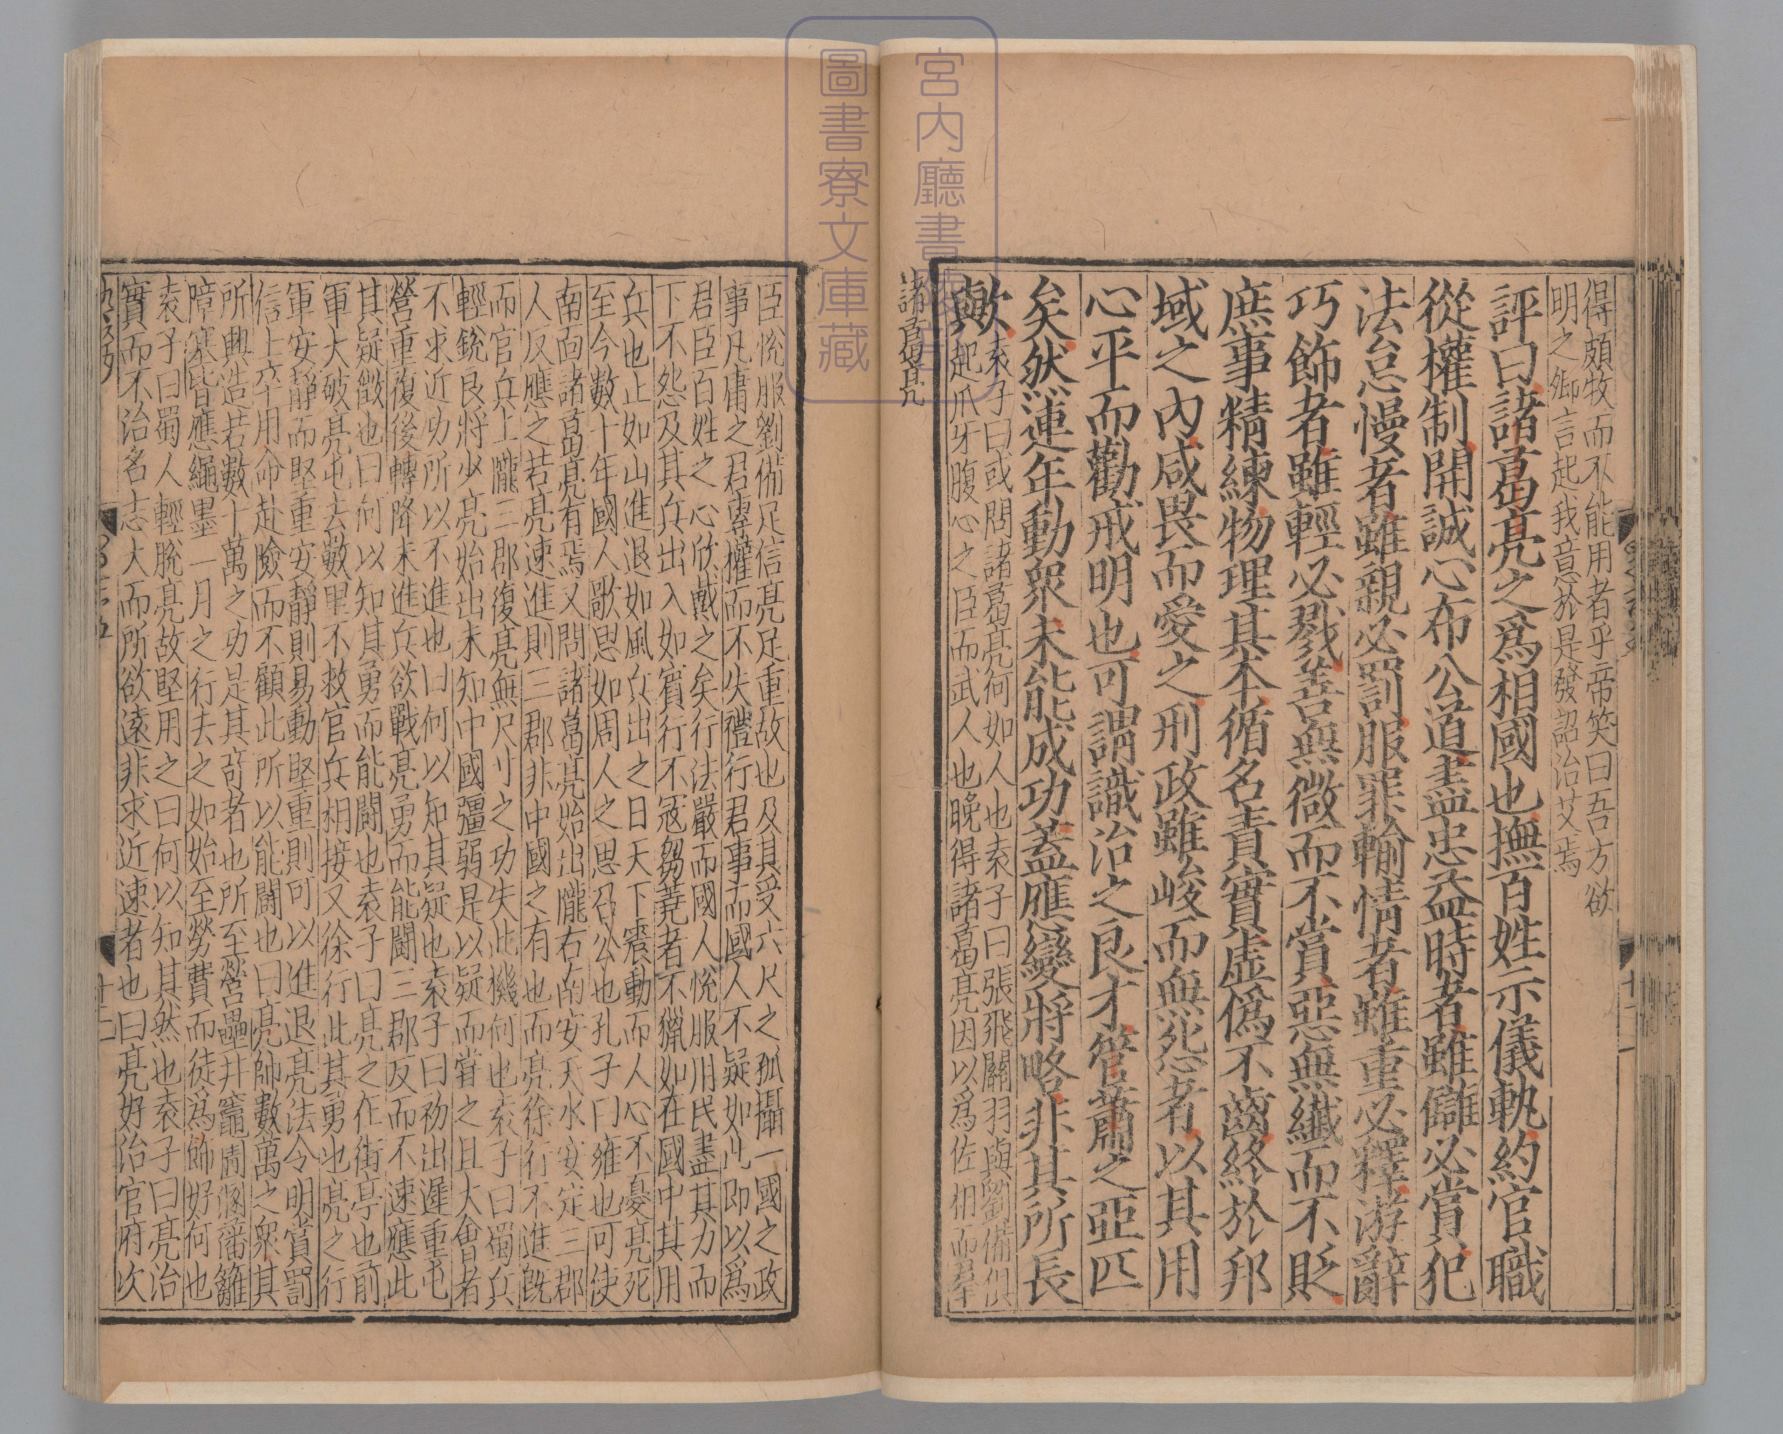 得頗牧而不能用者乎帝笑曰吾方欲
明之卿言起我意於是發詔治艾焉
評曰諸葛亮之爲相國也撫百姓示儀軌約官職
從權制開誠心布公道盡忠益時者雖讎必賞犯
法怠慢者雖親必罰服罪輸情者雖重必釋游辭
巧飾者雖輕必戮善無微而不賞惡無纖而不貶
庶事精練物理其本循名責實虛僞不齒終於邦
域之內咸畏而愛之刑政雖峻而無怨者以其用
心平而勸戒明也可謂識治之良才管蕭之亞匹
矣然連年動衆未能成功蓋應變將略非其所長
歟
袁子曰或問諸葛亮何如人也袁子曰張飛關羽與劉備俱
起爪牙腹心之臣而武人也晚得諸葛亮因以爲佐相而羣
諸葛亮
臣悅服劉備足信亮足重故也及其受六尺之孤攝一國之政
事凡庸之君專權而不失禮行君事而國人不疑如此即以爲
君臣百姓之心欣戴之矣行法嚴而國人悅服用民盡其力而
下不怨及其兵出入如賓行不寇芻蕘者不獵如在國中其用
兵也止如山進退如風兵出之日天下震動而人心不憂亮死
至今數十年國人歌思如周人之思召公也孔子曰雍也可使
南面諸葛亮有焉又問諸葛亮始出隴右南安天水安定三郡
人反應之若亮速進則三郡非中國之有也而亮徐行不進既
而官兵上隴三郡復亮無尺寸之功失此機何也袁子曰蜀兵
輕銳良將少亮始出未知中國彊弱是以疑而嘗之且大會者
不求近功所以不進也曰何以知其疑也袁子曰初出遲重屯
營重復後轉降未進兵欲戰亮勇而能鬪三郡反而不速應此
其疑徵也曰何以知其勇而能鬪也袁子曰亮之在街亭也前
軍大破亮屯去數里不救官兵相接又徐行此其勇也亮之行
軍安靜而堅重安靜則易動堅重則可以進退亮法令明賞罰
信士卒用命赴險而不顧此所以能鬪也曰亮帥數萬之衆其
所興造若數十萬之功是其奇者也所至營壘井竈圊溷藩籬
障塞皆應繩墨一月之行去之如始至勞費而徒爲飾好何也
袁子曰蜀人輕脫亮故堅用之曰何以知其然也袁子曰亮治
實而不治名志大而所欲遠非求近速者也曰亮好治官府次
十二
宮内廳書陵部
圖書寮文庫藏